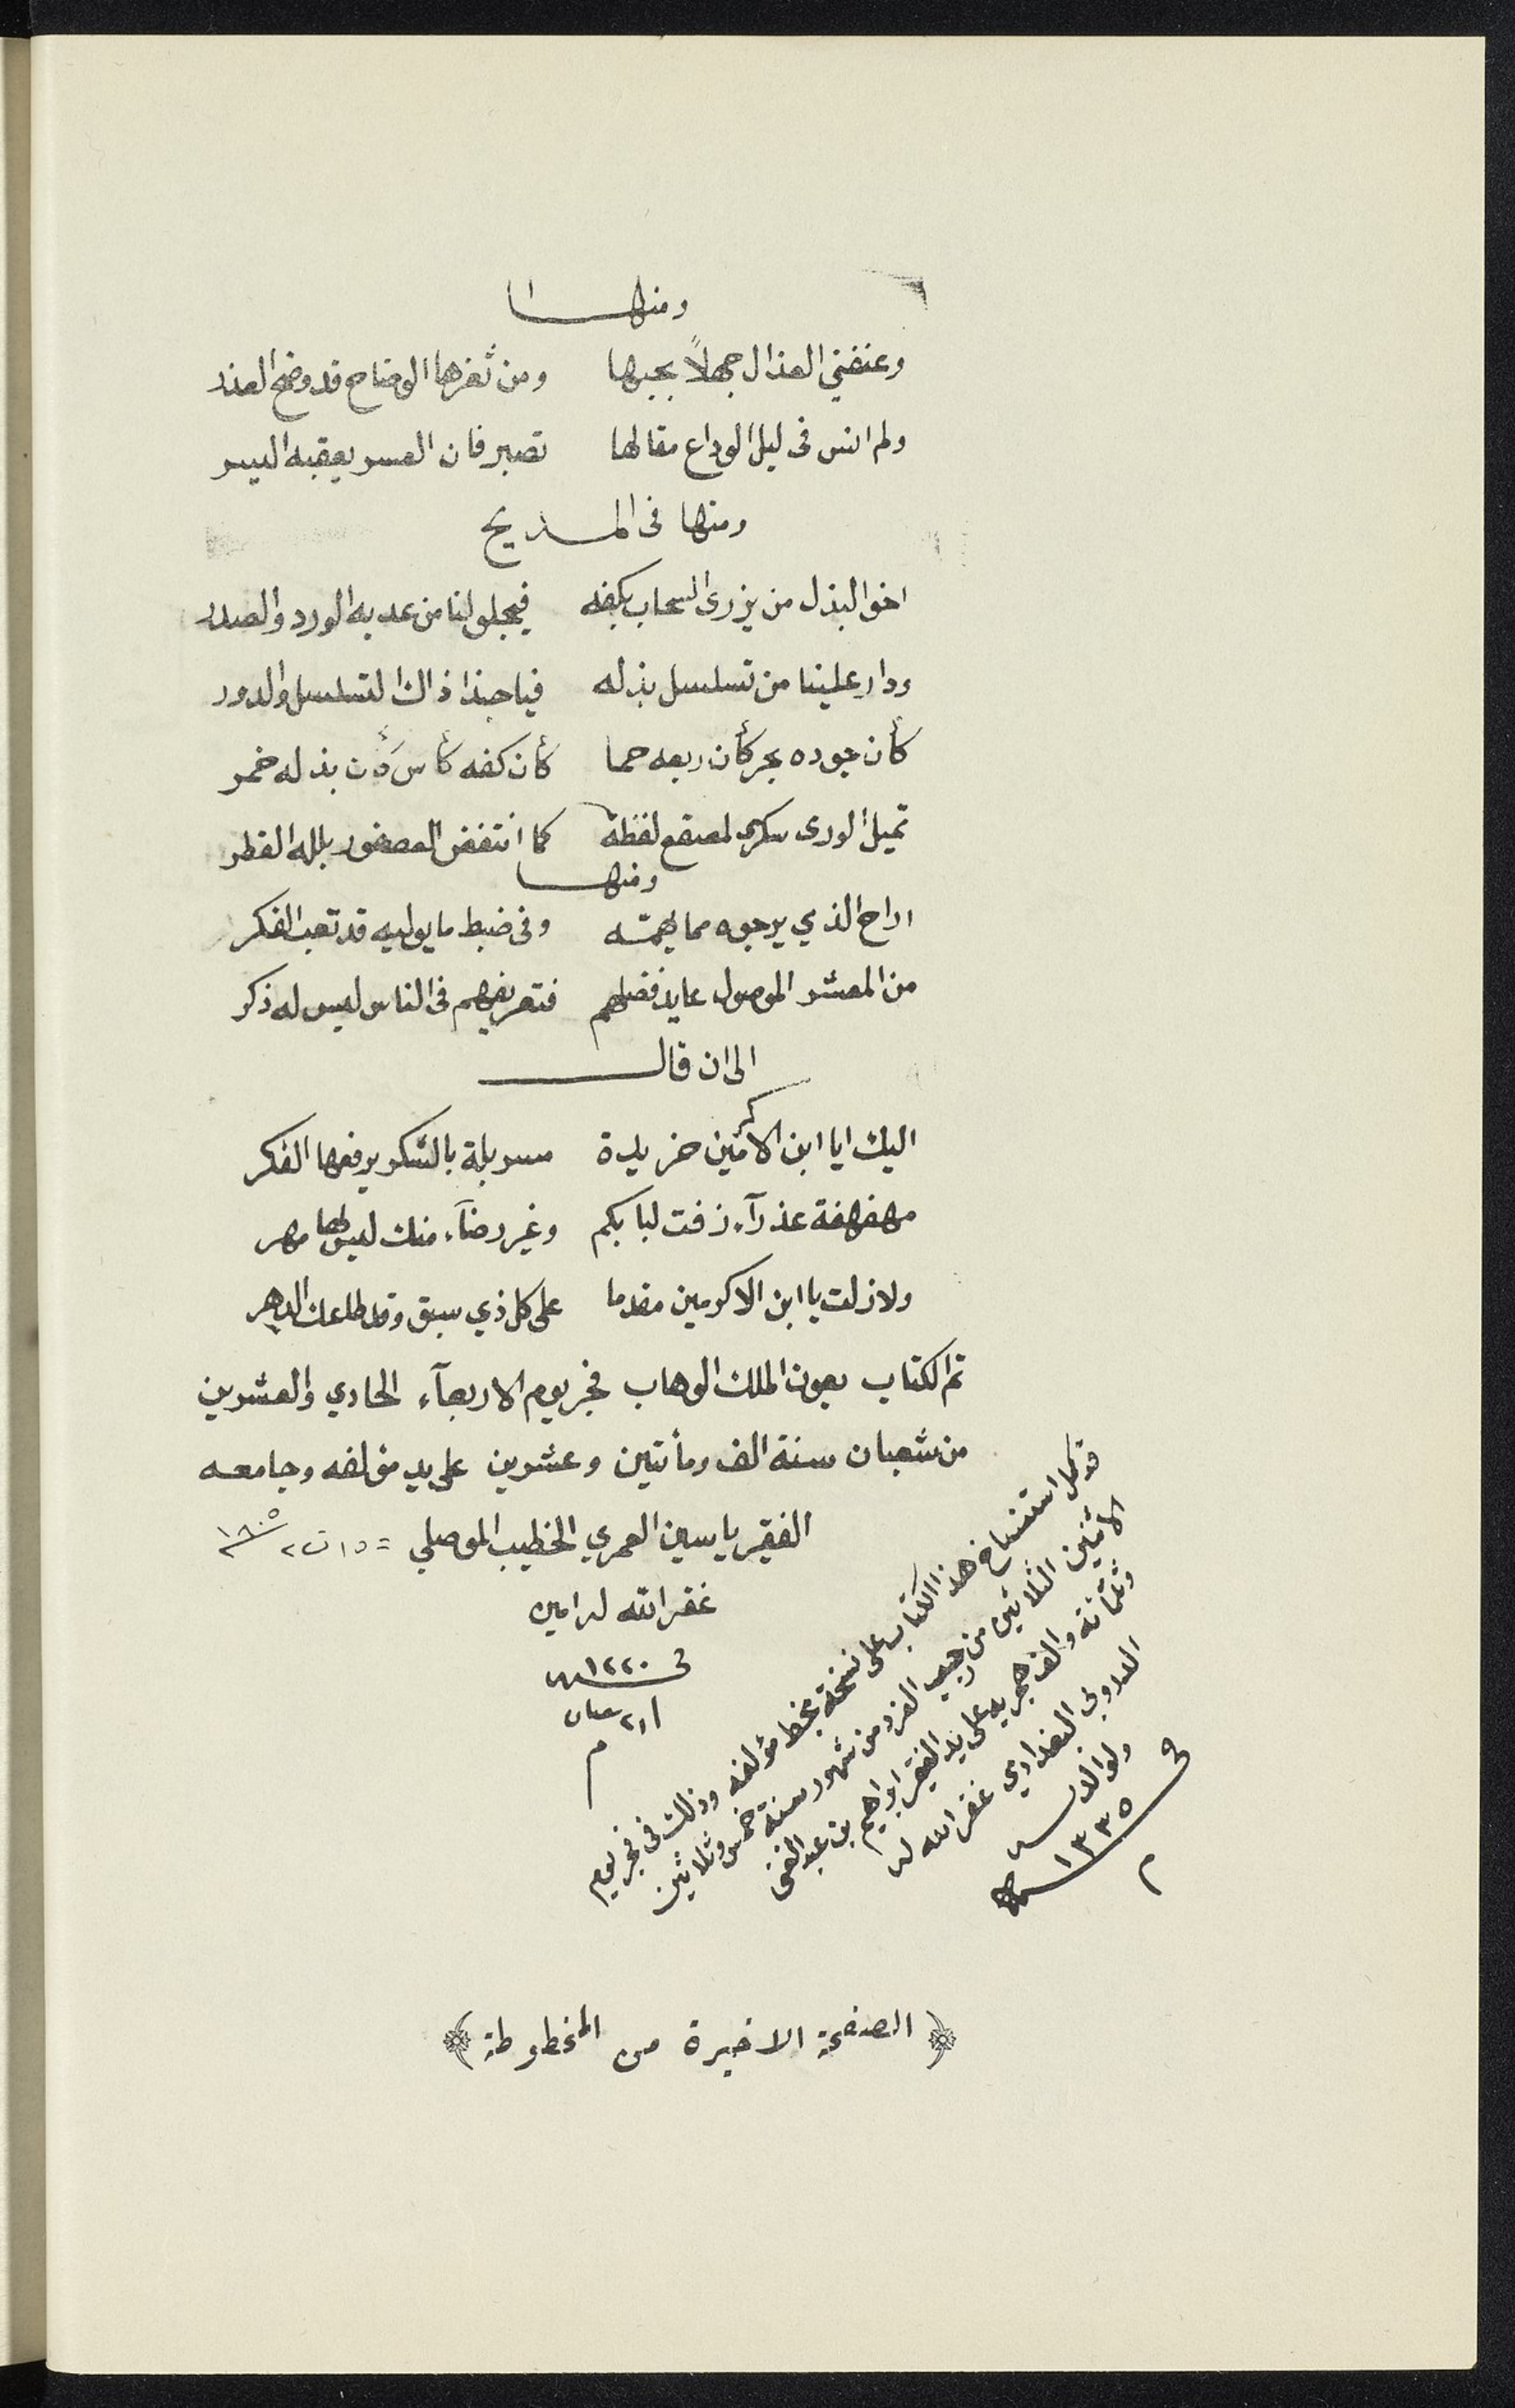 ومنها
وعنفني العذال جهلاً بحبها ومن ثغرها الوضاح قد وضح العذر
ولم انس في ليل الوداع مقالها تصبر فان العسر يعقبه اليسر
ومنها في المديح
اخو البذل من يزري السحاب بكفه فيجلو لنا من عد به الورد والصدر
ودار علينا من تسلسل بذله فيا حبذا ذاك التسلسل والدور
كأن جوده بحر كأن ربعه حما كأن كفه كأس كأن بذله خمر
تميل الورى سكرى لمصقع لفظه كما انتفض العصفور بلله القطر
ومنها
اراح الذي يرجوه مما يهمته وفي ضبط ما يوليه قد تعب الفكر
من المعشر الموصول عايد فضلهم فتعريفهم في الناس ليس له ذكر
الى ان قال
اليك ايا ابن الاكرمين خريدة مسربلة بالشكر يرفعها الفكر
مهفهفة عذرآء زفت لبابكم وغير رضآء منك ليس لها مهر
ولا زلت يا ابن الاكرمين مقدما على كل ذي سبق وقد طاعك الدهر
تم الكتاب بعون الملك الوهاب فجر يوم الاربعآء الحادي والعشرين
من شعبان سنة الف ومأتين وعشرين على يد مؤلفه وجامعه
الفقير ياسين العمري الخطيب الموصلي = ١٥ ت٢ ١٨٠٥
غفر الله له امين
في ١٢٢٠
٢١ شعبان
م
قد كمل استنساخ هذا الكتاب على نسخة بخط مؤلفه وذلك في فجر يوم
الاثنين الثلاثين من رجب الفرد من شهور سنة خمس وثلاثين
وثلثمائة والف هجريه على يد الفقير ابراهيم بن عبد الغني
الدروبي البغدادي غفر الله له
ولوالديه
في ١٣٣٥
م
﴿ الصفحة الاخيرة من المخطوطة ﴾